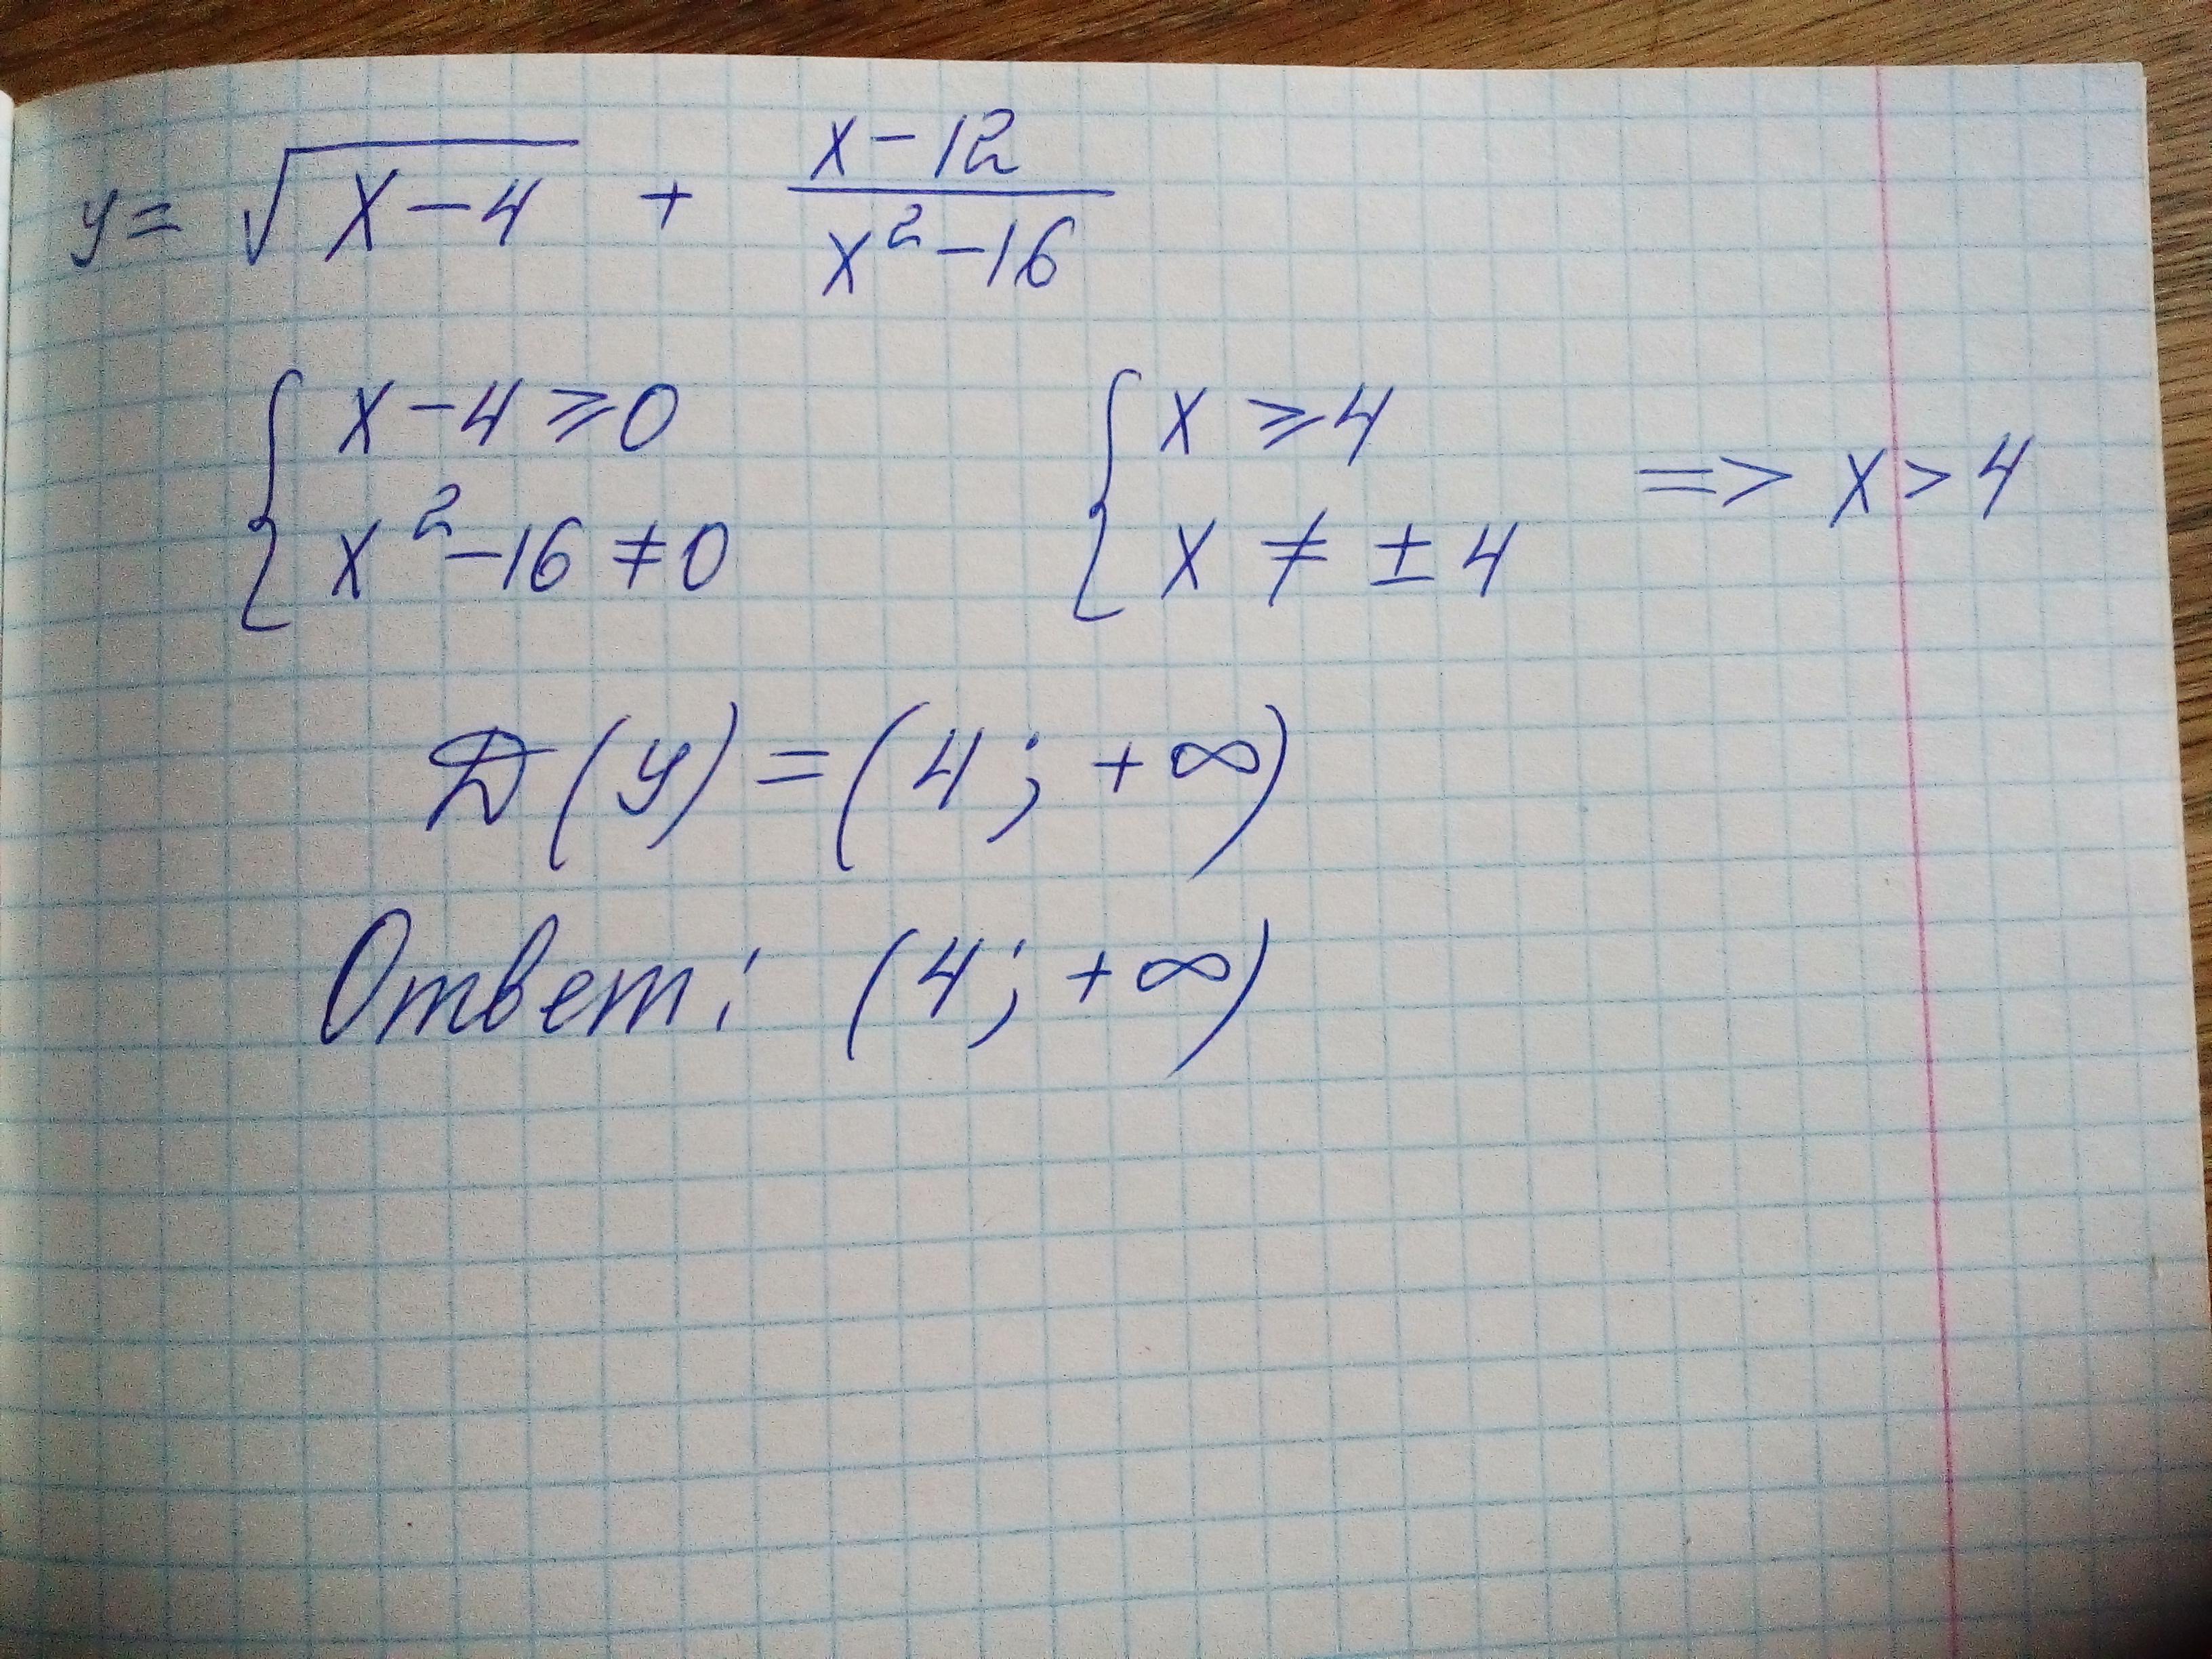 y = √(x-4) + (x-12)/(x²-16)
{ x-4 ⩾ 0 { x ⩾ 4
x²-16 ≠ 0 x ≠ ± 4 => x > 4
D(y) = (4; +∞)
Ответ: (4; +∞)